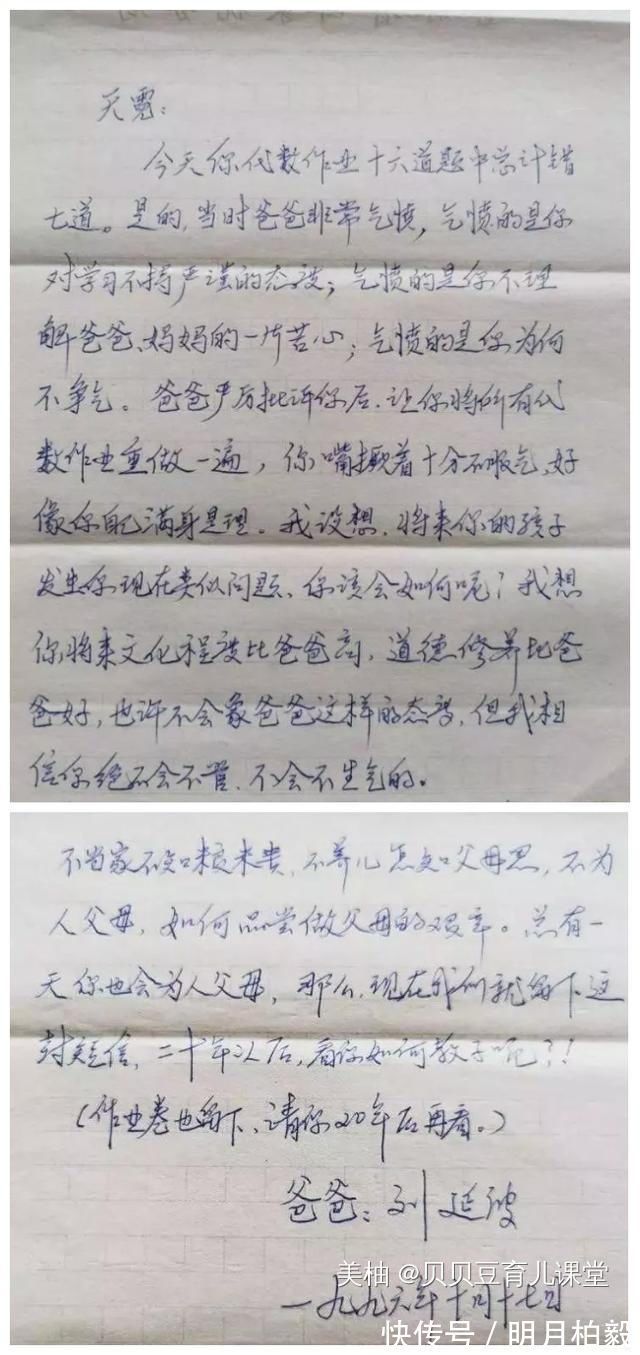 天霓：
今天你代数作业十六道题中总计错
七道。是的，当时爸爸非常气愤，气愤的是你
对学习不持严谨的态度；气愤的是你不理
解爸爸、妈妈的一片苦心；气愤的是你为何
不争气。爸爸严厉批评你后，让你将所有代
数作业重做一遍，你嘴撅着十分不服气，好
像你自己满身是理。我设想，将来你的孩子
发生你现在类似问题、你该会如何呢？我想
你将来文化程度比爸爸高，道德修养比爸
爸好，也许不会象爸爸这样的态度，但我相
信你绝不会不管，不会不生气的。
不当家不知口粮米贵，不养儿怎知父母恩，不为
人父母，如何品尝做父母的艰辛。总有一
天你也会为人父母，那么，现在我们就留下这
封短信，二十年以后，看你如何教子呢？！
（作业卷也留下、请你20年后再看。）
爸爸：刘延
一九九六年十月十七日
美柚 @贝贝豆育儿课堂
快传号 / 明月柏毅